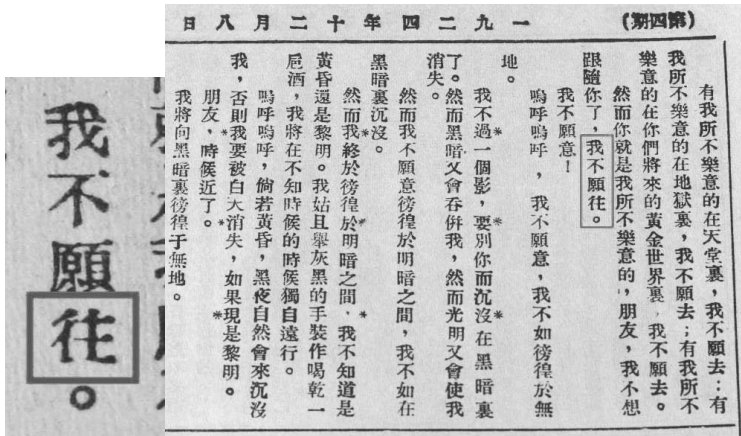 我不願往。
(第四期)
一九二四年十二月八日
有我所不樂意的在天堂裏，我不願去；有
我所不樂意的在地獄裏，我不願去；有我所不
樂意的在你們將來的黃金世界裏，我不願去。
然而你就是我所不樂意的，朋友，我不想
跟隨你了，我不願往。
我不願意！
嗚呼嗚呼，我不願意，我不如徬徨於無
地。
我不過一個影，要別你而沉沒在黑暗裏
了。然而黑暗又會吞併我，然而光明又會使我
消失。
然而我不願意徬徨於明暗之間，我不如在
黑暗裏沉沒。
然而我終於徬徨於明暗之間，我不知道是
黃昏還是黎明。我姑且舉灰黑的手裝作喝乾一
巵酒，我將在不知時候的時候獨自遠行。
嗚呼嗚呼，倘若黃昏，黑夜自然會來沉沒
我，否則我要被白天消失，如果現是黎明。
朋友，時候近了。
我將向黑暗裏徬徨于無地。